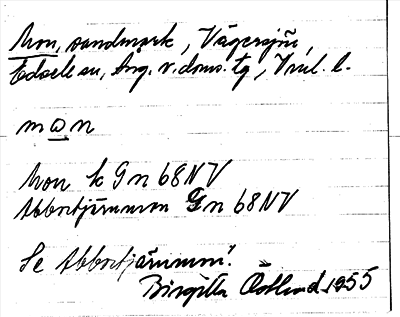 Mon, sandmark, Vägersjö,
Edsele sn, Ång. v. doms. tg, Vnl. l.
mon
Mon k Gn 68 NV
Abbortjärnmon Gn 68 NV
Se Abbortjärnmon!
Birgitta Östlund 1955